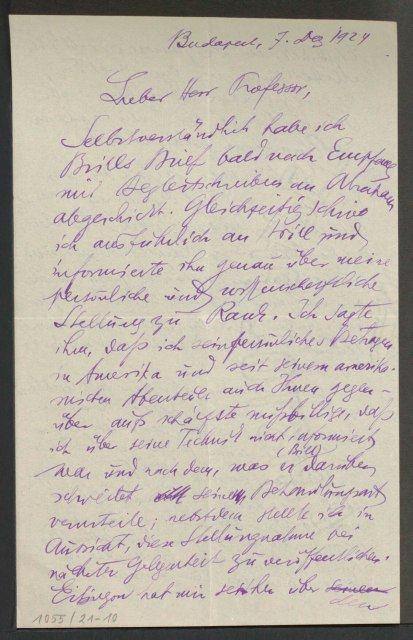 Budapest, 7. Dez 1924
Lieber Herr Professor,
Selbstverständlich habe ich
Brills Brief bald nach Empfang
mit Begleitschreiben an Abraham
abgeschickt. Gleichzeitig schrieb
ich ausführlich an Brill und
informierte ihn genau über meine
persönliche und wissenschaftliche
Stellung zu Rank. Ich sagte
ihm, daß ich sein persönliches Betragen
in Amerika und seit seinem amerika-
nischen Abenteuer auch Ihnen gegen-
über aufs schärfste mißbillige, daß
ich über seine Technik nicht informiert
war und nach dem, was er (Brill) darüber
schreibt seine
verurteile; nebstdem stellte ich in
Aussicht, diese Stellungnahme bei
nächster Gelegenheit zu veröffentlichen.
Eitingon hat mir seither über
den
1055/21-10